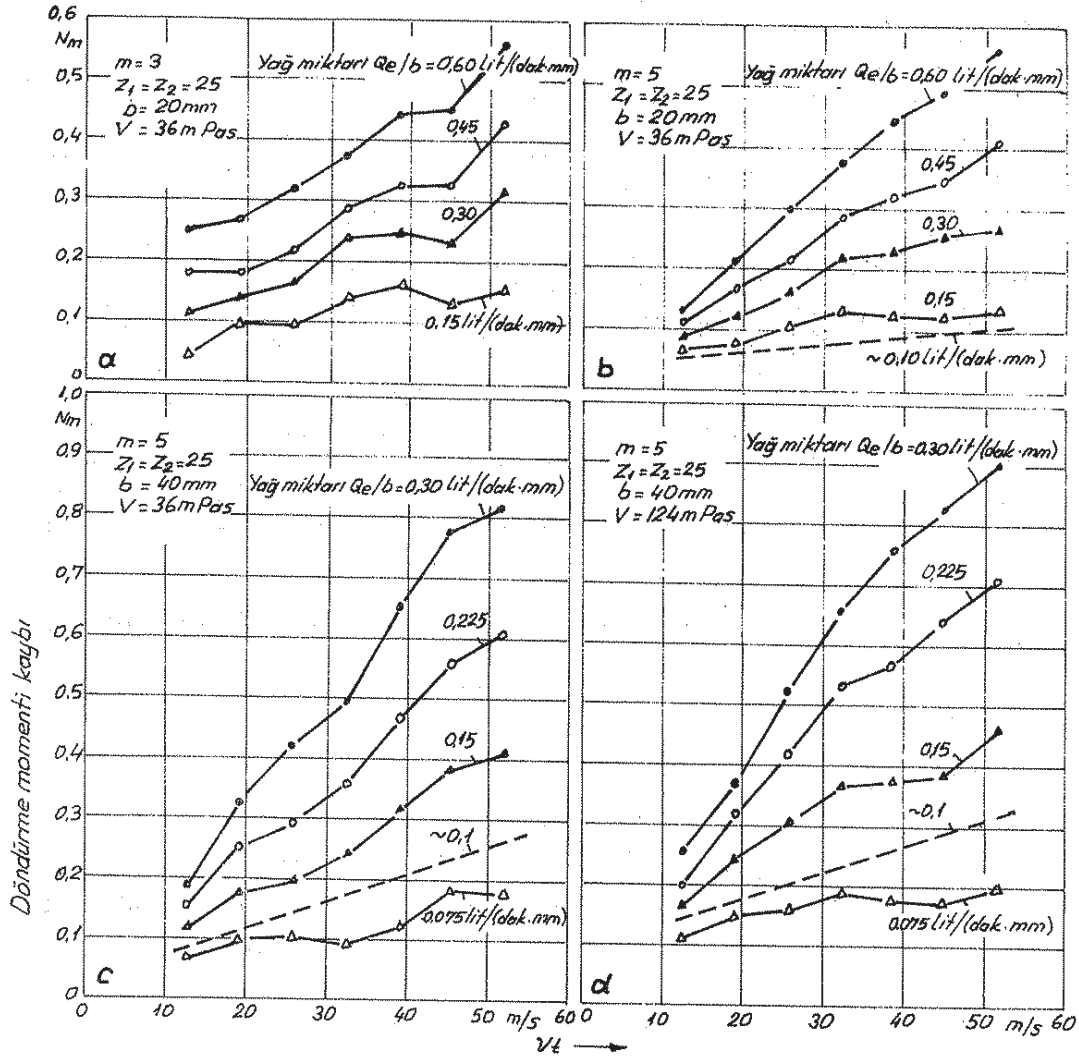 0,6
Nm
0,5
0,4
0,3
0,2
0,1
0
m = 3
Z1 = Z2 = 25
b = 20mm
V = 36 m Pas
Yağ miktarı Qe/b = 0,60 lit/(dak·mm)
0,45
0,30
0,15 lit/(dak·mm)
a
m = 5
Z1 = Z2 = 25
b = 20mm
V = 36 m Pas
Yağ miktarı Qe/b = 0,60 lit/(dak·mm)
0,45
0,30
0,15
~0,10 lit/(dak·mm)
b
1,0
Nm
0,9
0,8
0,7
0,6
0,5
0,4
0,3
0,2
0,1
0
Döndürme momenti kaybı
m = 5
Z1 = Z2 = 25
b = 40mm
V = 36 m Pas
Yağ miktarı Qe/b = 0,30 lit/(dak·mm)
0,225
0,15
~0,1
0.075 lit/(dak·mm)
c
m = 5
Z1 = Z2 = 25
b = 40mm
V = 124 m Pas
Yağ miktarı Qe/b = 0.30 lit/(dak·mm)
0,225
0,15
~0,1
0.075 lit/(dak·mm)
d
0 10 20 30 40 50 m/s 60
10 20 30 40 50 m/s 60
Vt